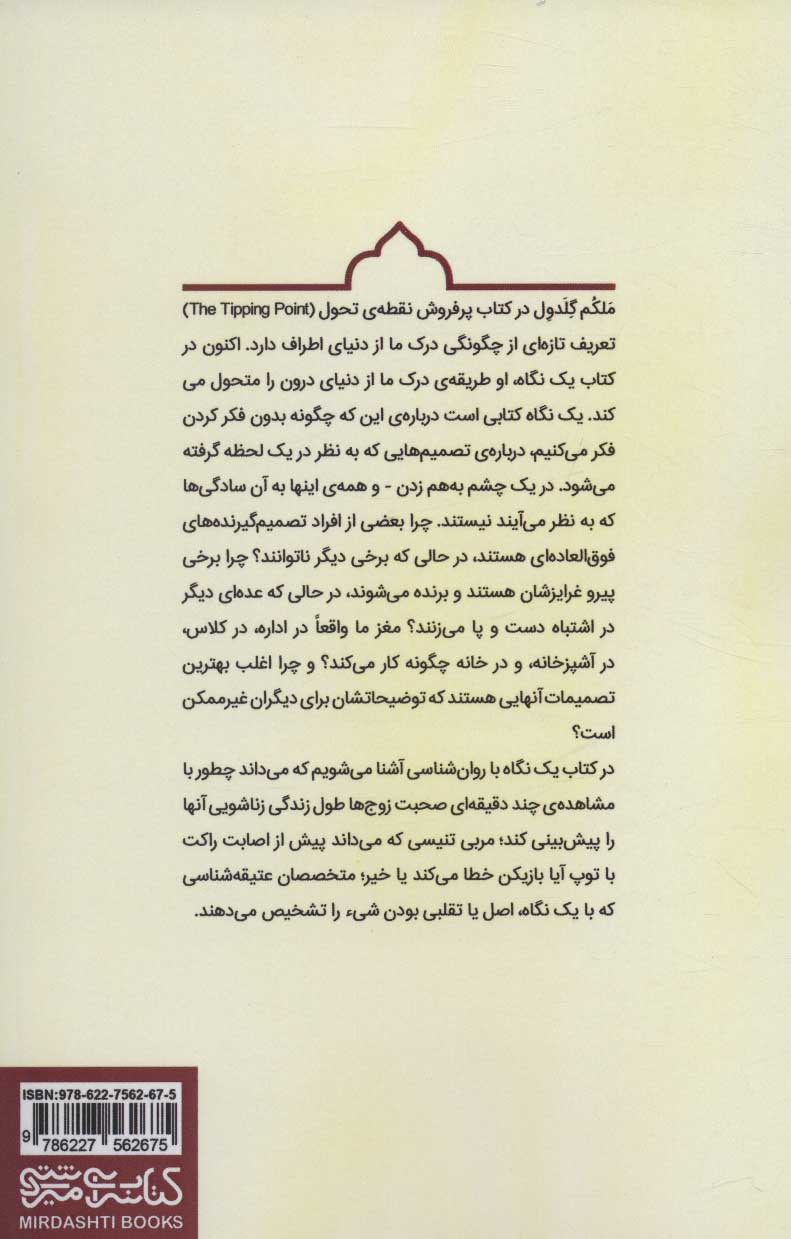 مَلکُم گِلَدوِل در کتاب پرفروش نقطه‌ی تحول (The Tipping Point)
تعریف تازه‌ای از چگونگی درک ما از دنیای اطراف دارد. اکنون در
کتاب یک نگاه، او طریقه‌ی درک ما از دنیای درون را متحول می
کند. یک نگاه کتابی است درباره‌ی این که چگونه بدون فکر کردن
فکر می‌کنیم، درباره‌ی تصمیم‌هایی که به نظر در یک لحظه گرفته
می‌شود. در یک چشم به‌هم زدن - و همه‌ی اینها به آن سادگی‌ها
که به نظر می‌آیند نیستند. چرا بعضی از افراد تصمیم‌گیرنده‌های
فوق‌العاده‌ای هستند، در حالی که برخی دیگر ناتوانند؟ چرا برخی
پیرو غرایزشان هستند و برنده می‌شوند، در حالی که عده‌ای دیگر
در اشتباه دست و پا می‌زنند؟ مغز ما واقعاً در اداره، در کلاس،
در آشپزخانه، و در خانه چگونه کار می‌کند؟ و چرا اغلب بهترین
تصمیمات آنهایی هستند که توضیحاتشان برای دیگران غیرممکن
است؟
در کتاب یک نگاه با روان‌شناسی آشنا می‌شویم که می‌داند چطور با
مشاهده‌ی چند دقیقه‌ای صحبت زوج‌ها طول زندگی زناشویی آنها
را پیش‌بینی کند؛ مربی تنیسی که می‌داند پیش از اصابت راکت
با توپ آیا بازیکن خطا می‌کند یا خیر؛ متخصصان عتیقه‌شناسی
که با یک نگاه، اصل یا تقلبی بودن شیء را تشخیص می‌دهند.
ISBN:978-622-7562-67-5
9 786227 562675
کتابسرای میردشتی
MIRDASHTI BOOKS